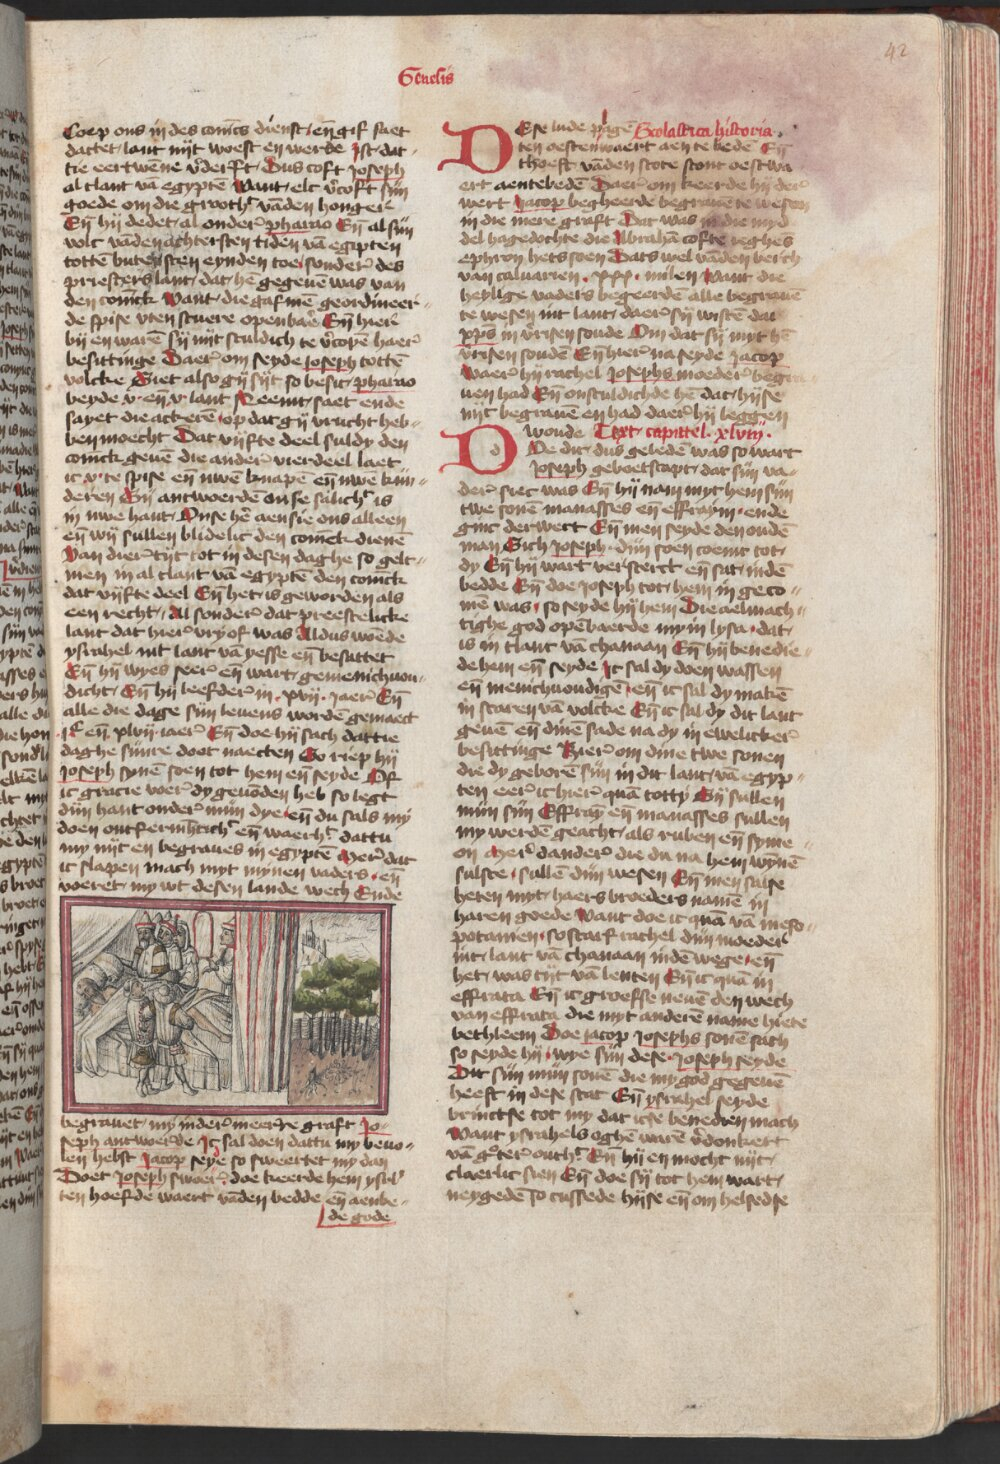 42
Genesis
Coep ons in des conĩcs dienst, eñ gif saet
dattet lant nijt woest en werde Ist dat
tie eertwēne v̄derft Dus coft Joseph
al tlant vā egyptē Want elc v̄coft sijn
goede om die grooth vāden honger
Eñ hij dedet al onder pharao Eñ al sijn
volc vāden achtersten tiden vā egipten
tottē butersten eynden toe sonder des
priesters lant dat hē gegeuē was van
den coninck Want die gaf mē geordineer
de spise vten scuere openbaer Eñ hier
bij en warē sij nijt sculdich te v̄copē haer
besittinge Daer om seyde Joseph tottē
volcke Siet also gij sijt so besit pharao
beyde v eñ v lant Neemt saet ende
sayet die ackerē op dat gij vrucht heb
ben moecht Dat vijfte deel suldy den
coninck geuē die ander vierdeel laet
ic v te spise eñ uwē knapē eñ uwē kin
deren Eñ antwoerdē onse salich is
in uwe hant Onse hē aensie ons alleen
eñ wij sullen blidelic den coninck dienē
Van dier tijt tot in desen daghe so gelt
men in al tlant vā egyptē den coninck
dat vijfte deel Eñ het is geworden als
een recht Al sonder dat preestelicke
lant dat hier vry of was Aldus woēde
ysrahel int lant vā yesse eñ besittet
Eñ hij wyes seer eñ wart gemenichuou
dicht Eñ hij leefder in xvij Jaer Eñ
alle die dage sijn leuens worden gemaect
jᶜ eñ xlvij iaer Eñ doe hij sach dattie
daghe sijnre doot naecten So riep hij
Joseph synē soen tot hem eñ seyde Of
ic gracie voer dy geuōden heb so legt
dijn hant onder mijn dye eñ du sals mij
doen ontfermhtich eñ waerh dattu
my nijt en begraues in egyptē Mer dat
ic slapen mach myt mynen vaders eñ
voeret my wt desen lande wech Ende
begrauet my inder meerre graft Jo
seph antwoerde Ic sal doen dattu my beuo
len hebst Jacop seyde so sweertet my dan
Doet Joseph swoer doe keerde hem ysrl
ten hoefde waert vāden bedde eñ aenbe
de gode
Ese lude plegē Scolastica historia
ten oestenwaert aen te beden Eñ
thoeft vāden stote stont oestwa
ert aentebedē Daer om keerde hij der
wert Jacop begheerde begrauē te wesen
in die mere graft Dat was in die myd
del hagedochte die Abrahā cofte ieghes
ephron hets soen Dats wel vāden berch
van caluarien xxx milen Want die
heylige vaders begeerdē alle begrauē
te wesen int lant daer sij wistē dat
xp̄s in v̄risen soude Om dat sij myt hē
v̄risen soudē Eñ hier na seyde Jacop
Waer hij rachel Josephs moeder begra
uen had Eñ onsculdichde hē dat hijse
nijt begrauē en had daer hij leggen
woude Text capittel xlviij
Oe dit dus geledē was so wart
Joseph geboetscapt dat sijn va
der siec was Eñ hij nam myt hem sijn
twe sonē manasses eñ effraym ende
ginc derwert Eñ men seyde den oudē
man Sich Joseph dijn soen coemt tot
dy Eñ hij wart versterct eñ sat indē
bedde Eñ doe Joseph tot hem in geco
mē was so seyde hij hem Die aelmach
tighe god opēbaerde my in lysa dat
is in tlant vā chanaan Eñ hij benedie
de hem eñ seyde Ic sal dy doen wassen
eñ menichuoudigē eñ ic sal dy makē
in scaren vā volcke Eñ ic sal dy dit lant
geuē eñ dinē sade na dy in ewelicker
besittinge Hier om dine twe sonen
die dy geborē sijn in dit lant vā egyp
ten eer ic hier quā tot ty Eñ sullen
mijn sijn Effraȳ eñ manasses sullen
my werdē geacht als ruben eñ syme
on Mer dander die du na hem wynē
sulste sullē dijn wesen Eñ men salse
heten myt haers broeders namē in
haren goede Want doe ic quā vā meso
potamien so starf rachel dijn moeder
int lant vā chanaan indē wege eñ
het was tijt vā lenten Eñ ic quā in
effrata Eñ ic groefse neuē den wech
van effrata die myt anderē name hiete
bethleem Doe Jacop Josephs sonē sach
so seyde hij wye sijn dese Joseph seyde
Dit sijn mijn sonē die my god gegeuē
heeft in dese stat Eñ ysrahel seyde
brinctse tot my dat icse benedien mach
Want ysrahels oghē warē v̄donkert
vā gter outh Eñ hij en mocht nijt
claerlic sien Eñ doe sij tot hem wart
neygedē So cussede hijse eñ om helsedse